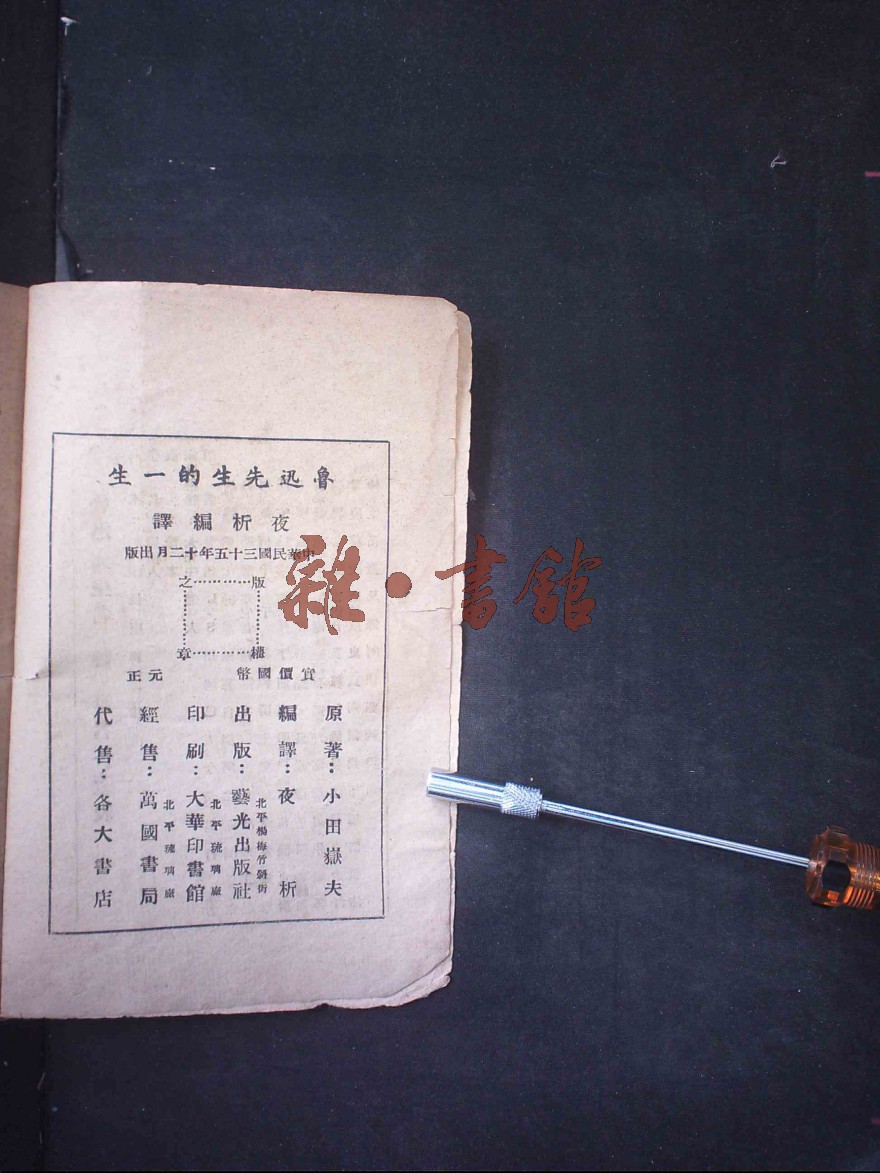 魯迅先生的一生
夜析編譯
中華民國三十五年十二月出版
版…………之
權…………章
實價國幣 元正
原著：小田嶽夫
編譯：夜析
出版：藝光出版社
北平楊梅竹斜街
印刷：大華印書館
北平琉璃廠
經售：萬國書局
北平琉璃廠
代售：各大書店
雜·書館